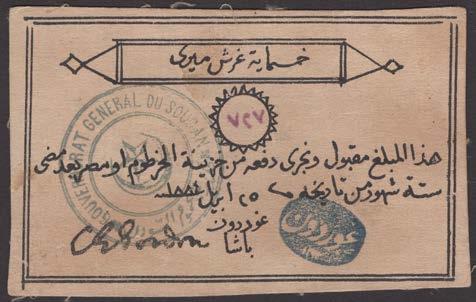 خمسماية غرش ميرى
٧٢٧
هذا المبلغ مقبول ويجرى دفعه من خزينة الخرطوم او مصر بعد مضى
ستة شهور من تاريخه ٢٥ ابريل ١٨٨٤ سنه
غوردون
باشا
GOUVERNORAT GENERAL DU SOUDAN
C G Gordon